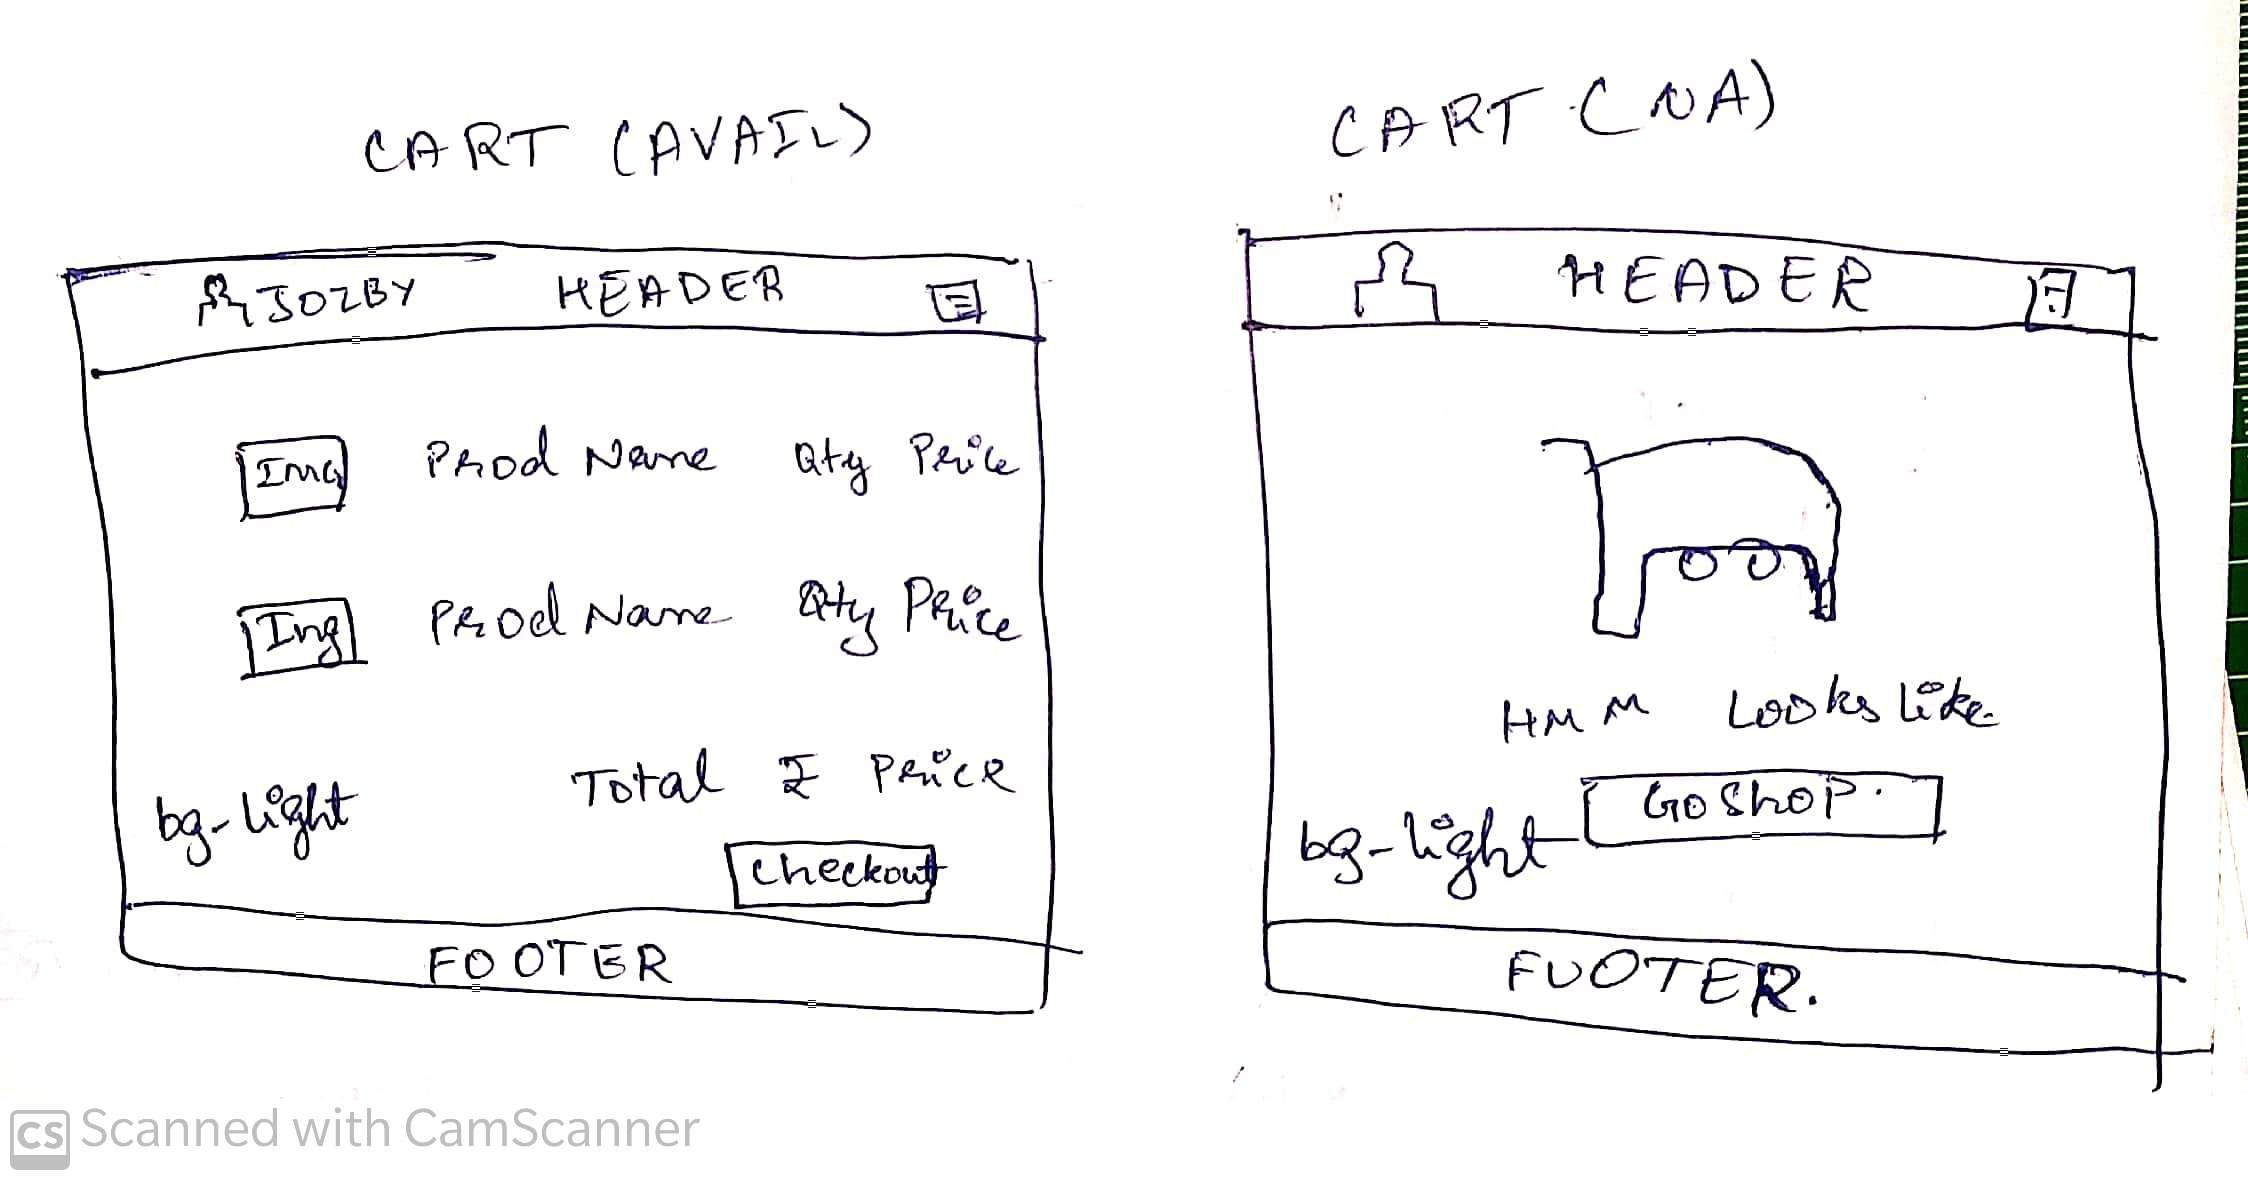 CART (AVAIL)
JOZBY HEADER
Img Prod Name Qty Price
Img Prod Name Qty Price
Total Price
bg-light
Checkout
FOOTER
CART (NA)
HEADER
HMM Looks like
Go Shop.
bg-light
FOOTER.
cs Scanned with CamScanner